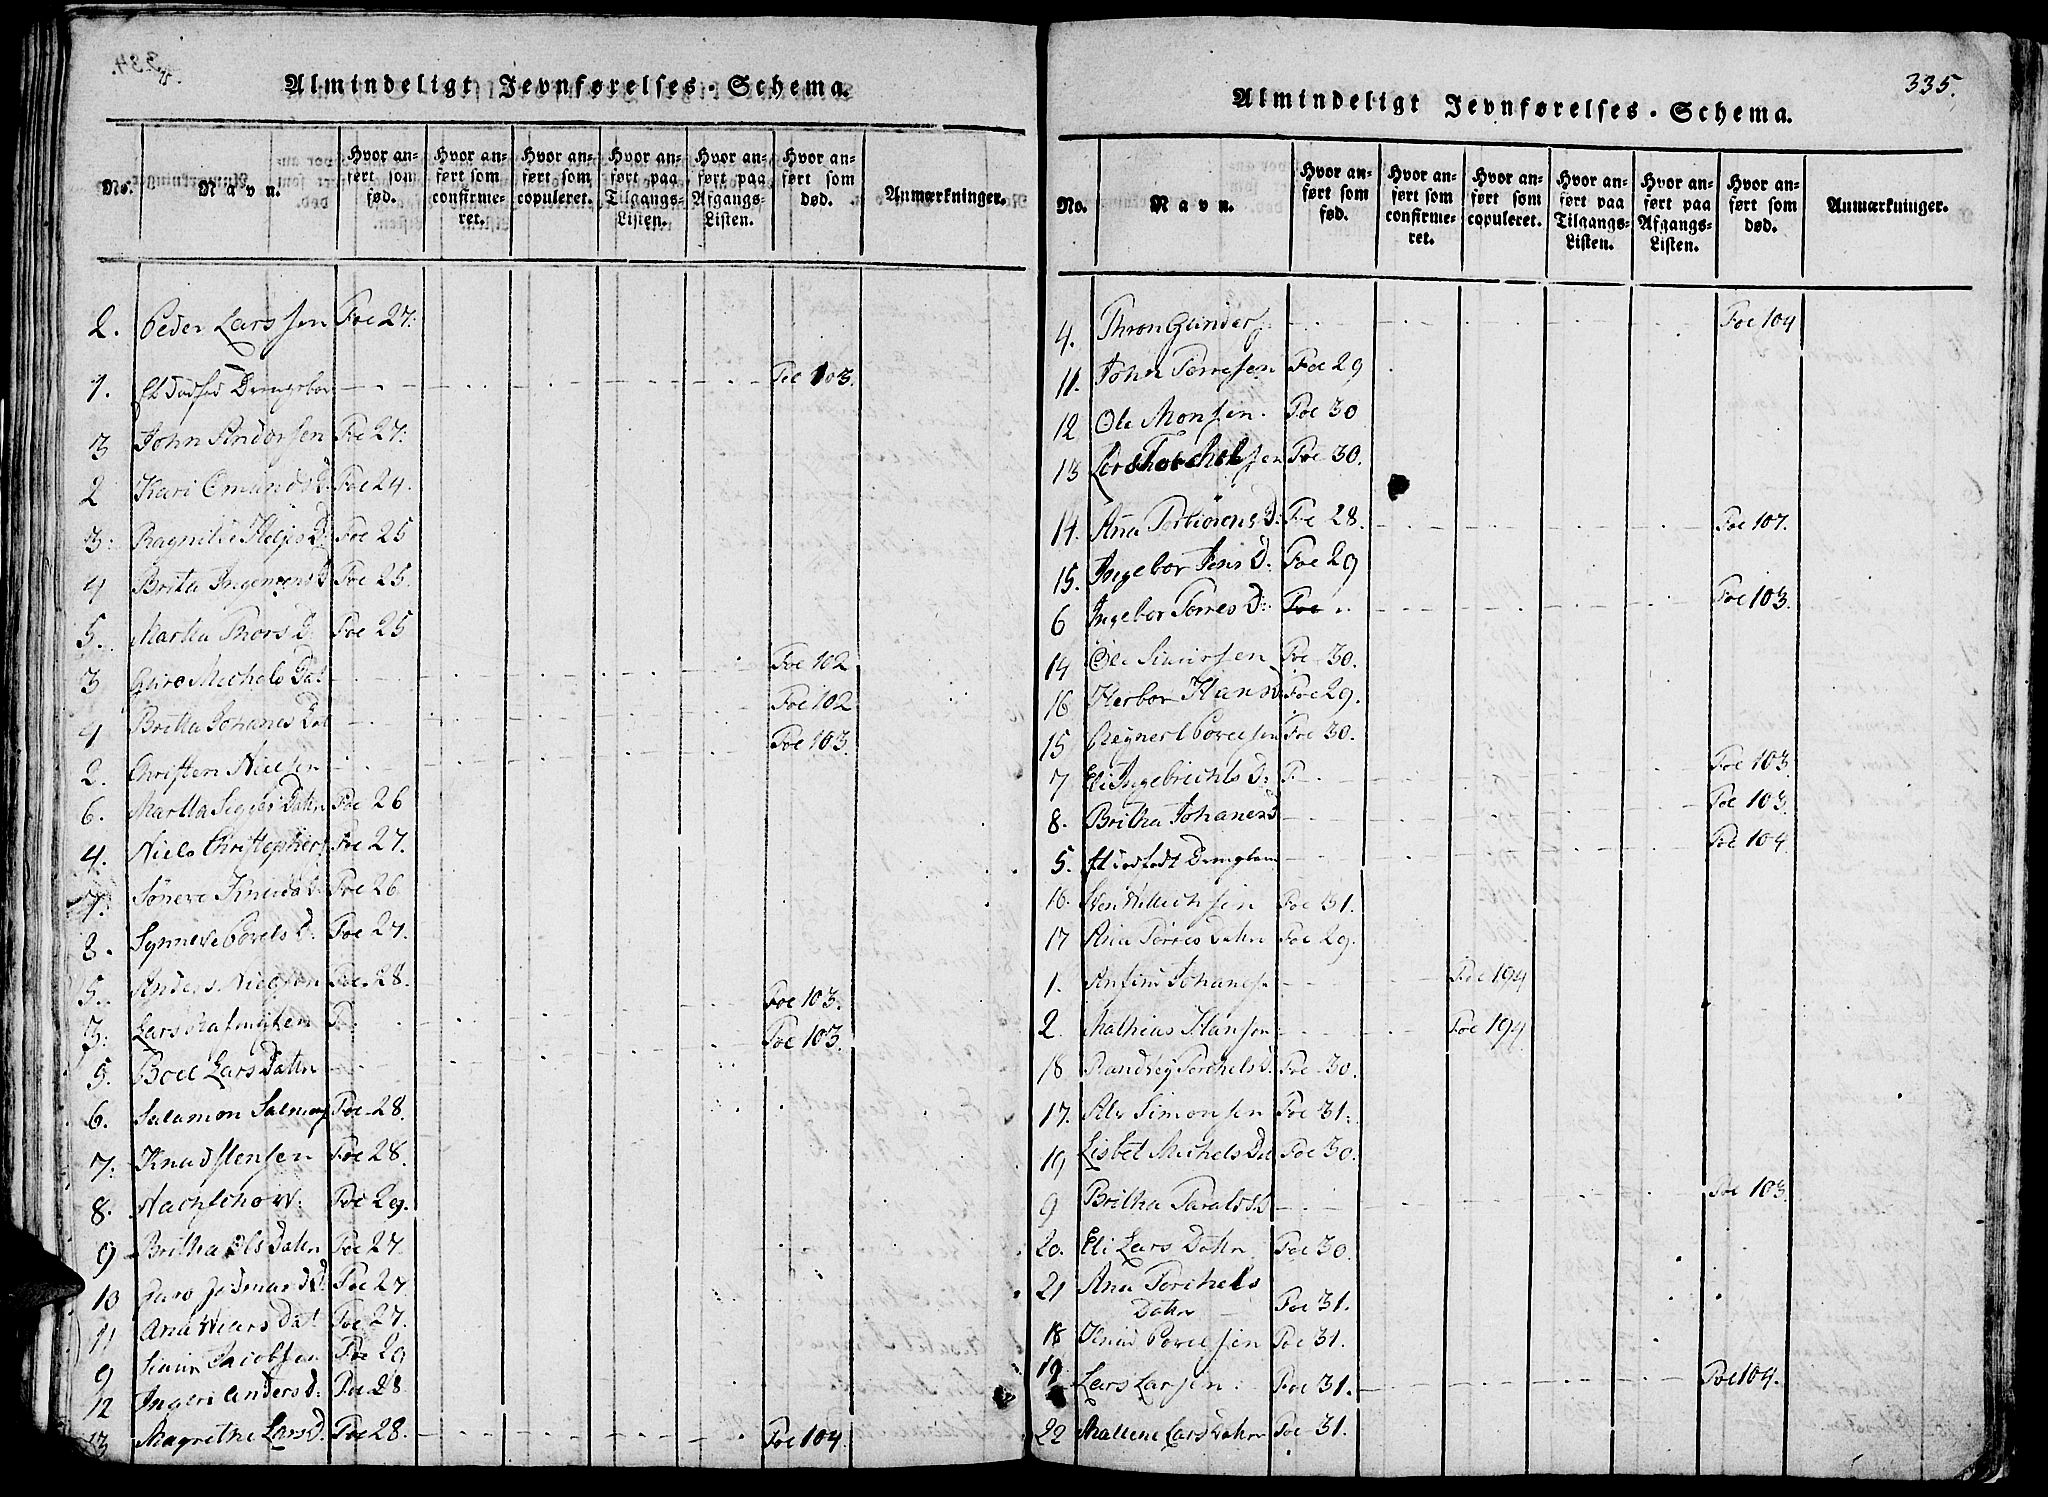 Almindeligt Jevnførelses-Schema.
No. Navn. Hvor anført som fød. Hvor anført som confirmeret. Hvor anført som copuleret. Hvor anført paa Tilgangs-Listen. Hvor anført paa Afgangs-Listen. Hvor anført som død. Anmærkninger.
2. Peder Larssen Foe 27.
1. Drengebar Foe 103.
3 John Andersen Foe 27.
2 Kari Omunds D. Foe 24.
3. Helges D. Foe 25
4 Brita Foe 25.
5. Martha Thors D. Foe 25
3 Guro Michels Dat Foe 102
4 Britha Johanes Dat Foe 102
2. Christen Nielsen Foe 103.
6. Martha Datn Foe 26
4. Niels Christophers Foe 27.
7. Foe 26
8. Synneve Povels D. Foe 27.
5. Anders Nielsen Foe 28.
3. Lars Rasmussen Foe 103.
5. Boel Lars Datn Foe 103.
6. Salamon Salmons Foe 28.
7. Knud Stensen Foe 28.
8. Foe 29.
9 Britha Ols Datn Foe 27
10 Guro Foe 27
11 Ana Dat Foe 27.
9 Simin Jacobsen Foe 29
12 Ingeri Anders D. Foe 28
13 Magrethe Lars D. Foe 28. Foe 104.
335.
Almindeligt Jevnførelses-Schema.
No. Navn. Hvor anført som fød. Hvor anført som confirmeret. Hvor anført som copuleret. Hvor anført paa Tilgangs-Listen. Hvor anført paa Afgangs-Listen. Hvor anført som død. Anmærkninger.
4. Thron Gunders Foe 104
11. John Torresen Foe 29
12 Ole Monsen. Foe 30
13 Lars Torchelsen Foe 30.
14. Ana Torbiörens D. Foe 28. Foe 107.
15. Ingebor Jens D. Foe 29
6 Ingebor Torres D. Foe Foe 103.
14 Ole Simonsen Foe 30.
16 Herbor Hans D Foe 29.
15 Regner Povelsen Foe 30.
7 Eli Ingebrichts D. F Foe 103.
8. Britha Johanes D Foe 103.
5. Foe 104
16. Foe 31.
17 Ana Torres Datn Foe 29.
1. Johanes Foe 194
2. Mathias Hansen Foe 194
18 Randvey Torchels D. Foe 30.
17. Simonsen Foe 31.
19 Lisbet Michels Dat Foe 30.
9 Britha Taralds D Foe 103.
20. Eli Lars Datn Foe 30.
21 Ana Torchels
Datn Foe 31.
18 Knud Povelsen Foe 31.
19 Lars Larsen. Foe 31. Foe 104.
22 Mallene Lars Datn Foe 31.